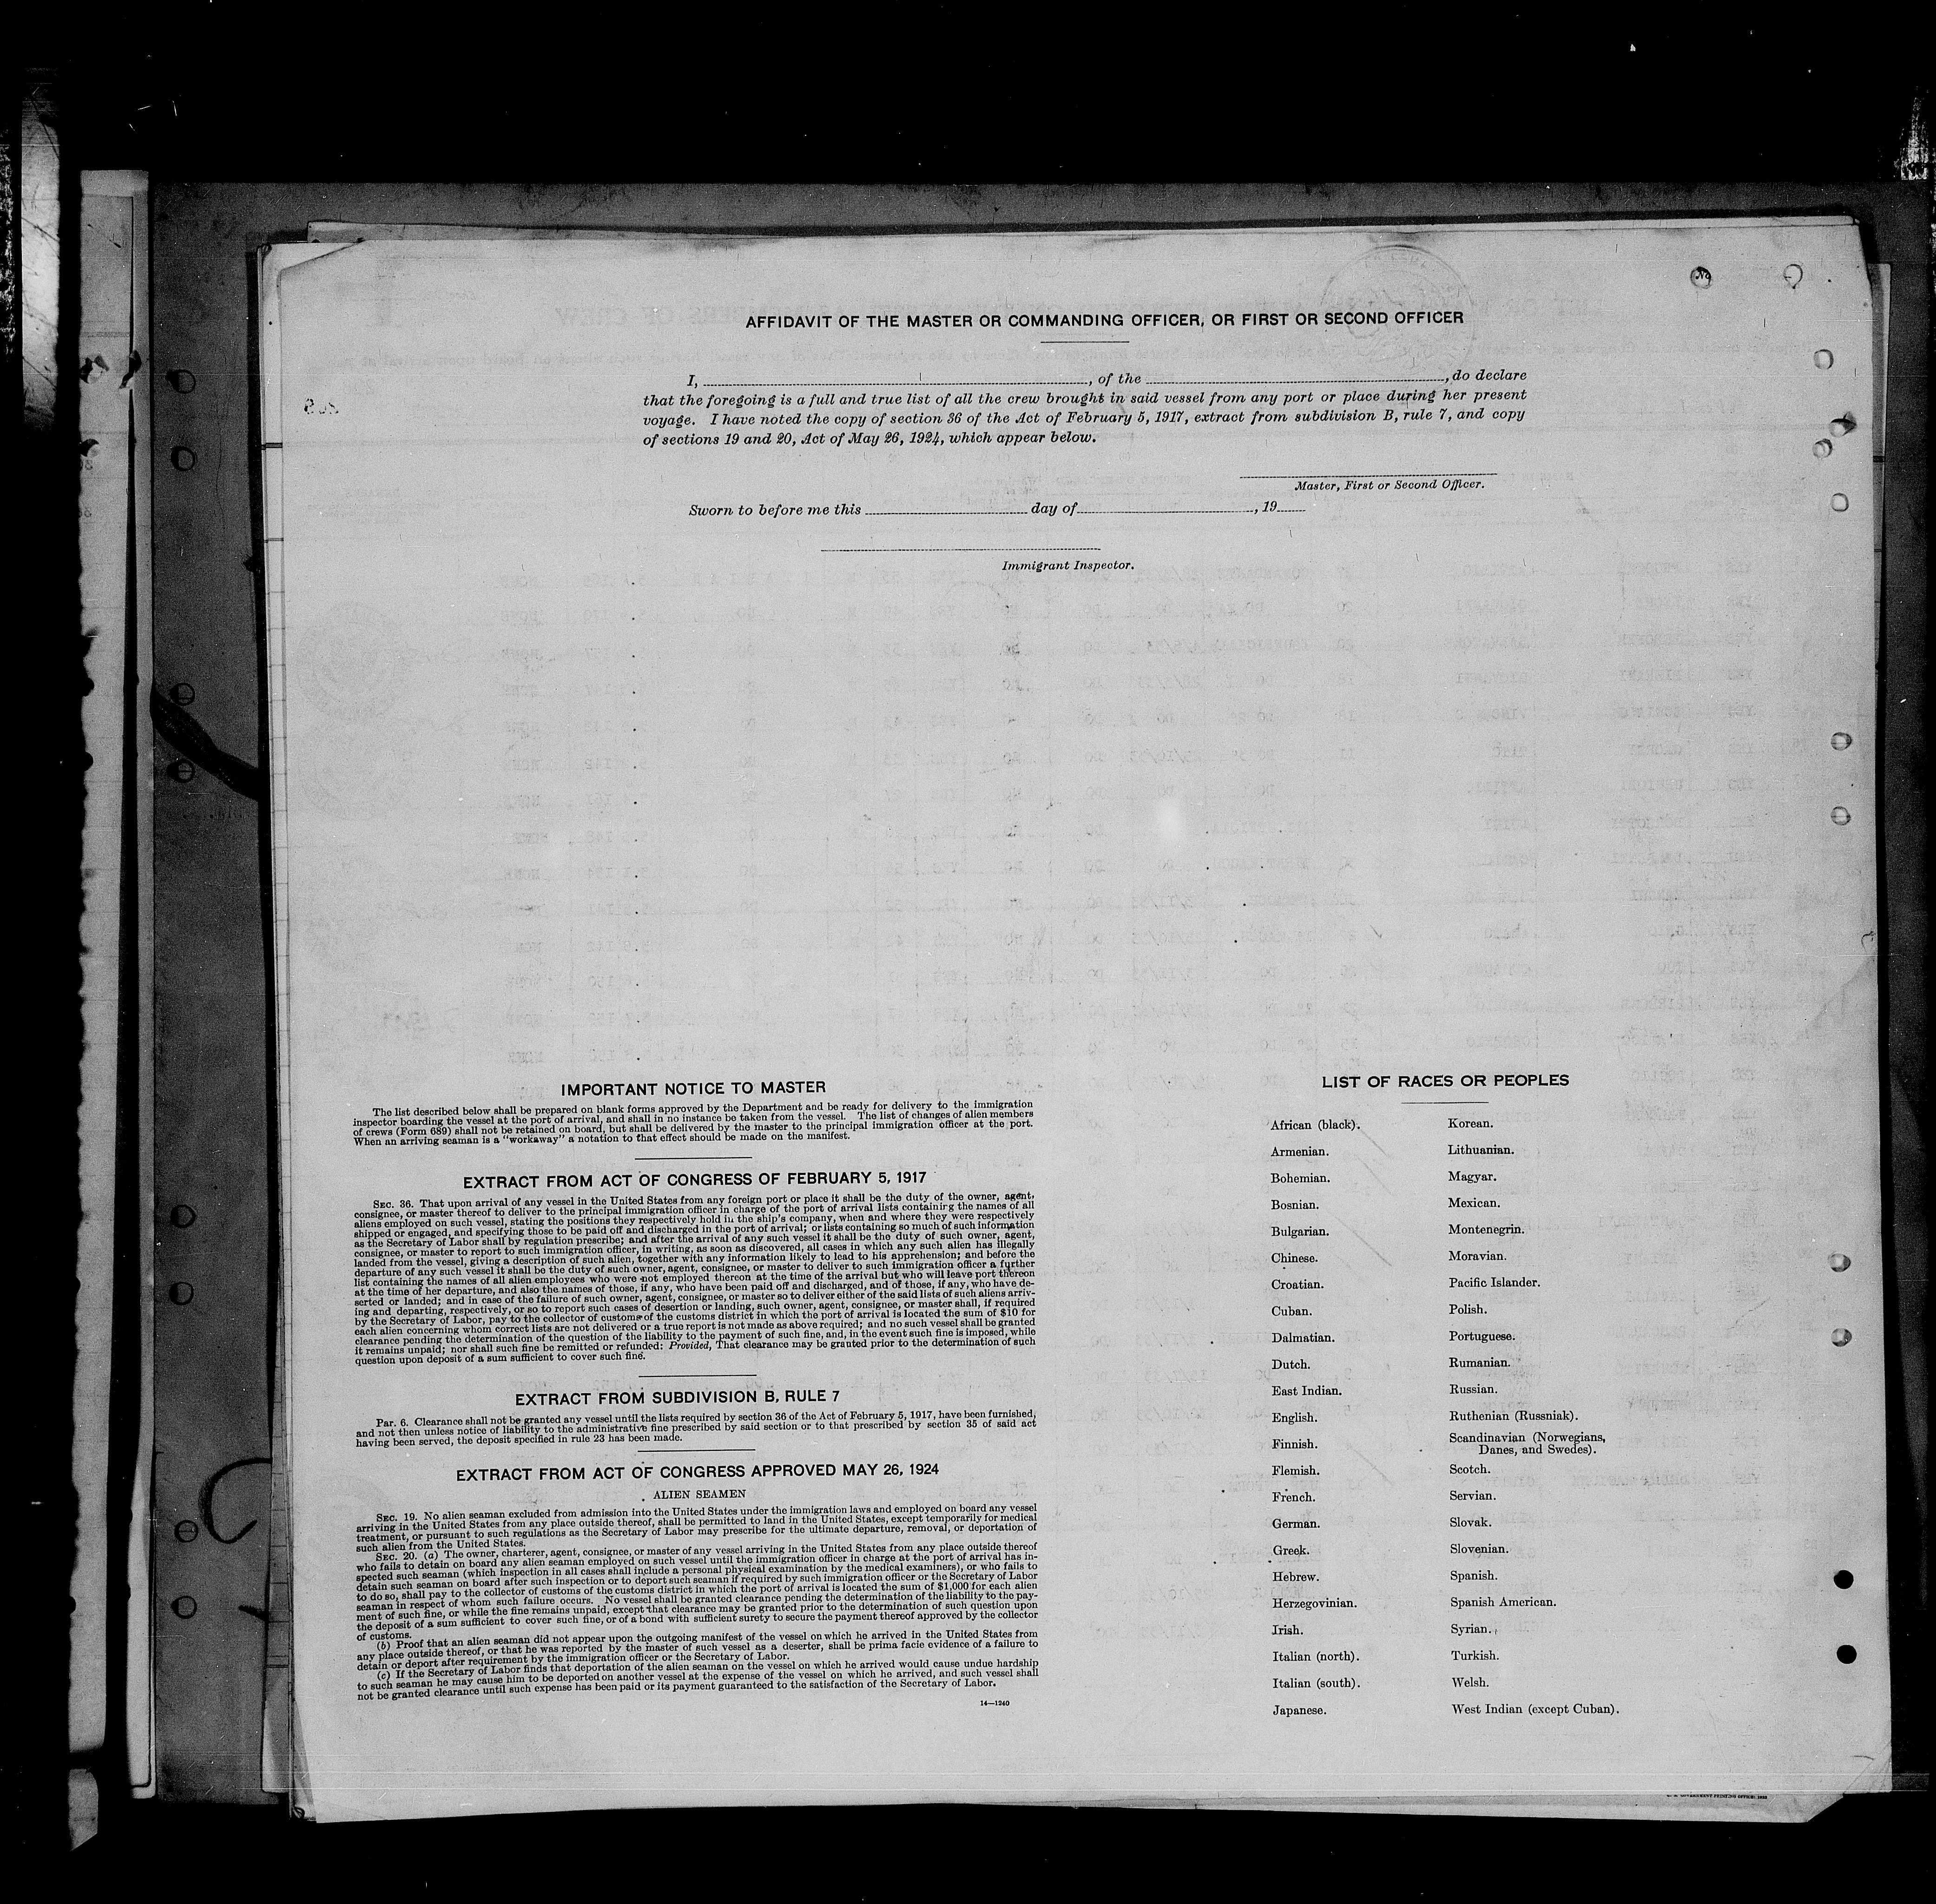 AFFIDAVIT OF THE MASTER OR COMMANDING OFFICER, OR FIRST OR SECOND OFFICER
I, , of the , do declare
that the foregoing is a full and true list of all the crew brought in said vessel from any port or place during her present
voyage. I have noted the copy of section 36 of the Act of February 5, 1917, extract from subdivision B, rule 7, and copy
of sections 19 and 20, Act of May 26, 1924, which appear below.
Master, First or Second Officer.
Sworn to before me this day of , 19
Immigrant Inspector.
IMPORTANT NOTICE TO MASTER
The list described below shall be prepared on blank forms approved by the Department and be ready for delivery to the immigration
inspector boarding the vessel at the port of arrival, and shall in no instance be taken from the vessel. The list of changes of alien members
of crews (Form 689) shall not be retained on board, but shall be delivered by the master to the principal immigration officer at the port.
When an arriving seaman is a "workaway" a notation to that effect should be made on the manifest.
EXTRACT FROM ACT OF CONGRESS OF FEBRUARY 5, 1917
SEC. 36. That upon arrival of any vessel in the United States from any foreign port or place it shall be the duty of the owner, agent,
consignee, or master thereof to deliver to the principal immigration officer in charge of the port of arrival lists containing the names of all
aliens employed on such vessel, stating the positions they respectively hold in the ship's company, when and where they were respectively
shipped or engaged, and specifying those to be paid off and discharged in the port of arrival; or lists containing so much of such information
as the Secretary of Labor shall by regulation prescribe; and after the arrival of any such vessel it shall be the duty of such owner, agent,
consignee, or master to report to such immigration officer, in writing, as soon as discovered, all cases in which any such alien has illegally
landed from the vessel, giving a description of such alien, together with any information likely to lead to his apprehension; and before the
departure of any such vessel it shall be the duty of such owner, agent, consignee, or master to deliver to such immigration officer a further
list containing the names of all alien employees who were not employed thereon at the time of the arrival but who will leave port thereon
at the time of her departure, and also the names of those, if any, who have been paid off and discharged, and of those, if any, who have de-
serted or landed; and in case of the failure of such owner, agent, consignee, or master so to deliver either of the said lists of such aliens arriv-
ing and departing, respectively, or so to report such cases of desertion or landing, such owner, agent, consignee, or master shall, if required
by the Secretary of Labor, pay to the collector of customs of the customs district in which the port of arrival is located the sum of $10 for
each alien concerning whom correct lists are not delivered or a true report is not made as above required; and no such vessel shall be granted
clearance pending the determination of the question of the liability to the payment of such fine, and, in the event such fine is imposed, while
it remains unpaid; nor shall such fine be remitted or refunded: Provided, That clearance may be granted prior to the determination of such
question upon deposit of a sum sufficient to cover such fine.
EXTRACT FROM SUBDIVISION B, RULE 7
Par. 6. Clearance shall not be granted any vessel until the lists required by section 36 of the Act of February 5, 1917, have been furnished,
and not then unless notice of liability to the administrative fine prescribed by said section or to that prescribed by section 35 of said act
having been served, the deposit specified in rule 23 has been made.
EXTRACT FROM ACT OF CONGRESS APPROVED MAY 26, 1924
ALIEN SEAMEN
SEC. 19. No alien seaman excluded from admission into the United States under the immigration laws and employed on board any vessel
arriving in the United States from any place outside thereof, shall be permitted to land in the United States, except temporarily for medical
treatment, or pursuant to such regulations as the Secretary of Labor may prescribe for the ultimate departure, removal, or deportation of
such alien from the United States.
SEC. 20. (a) The owner, charterer, agent, consignee, or master of any vessel arriving in the United States from any place outside thereof
who fails to detain on board any alien seaman employed on such vessel until the immigration officer in charge at the port of arrival has in-
spected such seaman (which inspection in all cases shall include a personal physical examination by the medical examiners), or who fails to
detain such seaman on board after such inspection or to deport such seaman if required by such immigration officer or the Secretary of Labor
to do so, shall pay to the collector of customs of the customs district in which the port of arrival is located the sum of $1,000 for each alien
seaman in respect of whom such failure occurs. No vessel shall be granted clearance pending the determination of the liability to the pay-
ment of such fine, or while the fine remains unpaid, except that clearance may be granted prior to the determination of such question upon
the deposit of a sum sufficient to cover such fine, or of a bond with sufficient surety to secure the payment thereof approved by the collector
of customs.
(b) Proof that an alien seaman did not appear upon the outgoing manifest of the vessel on which he arrived in the United States from
any place outside thereof, or that he was reported by the master of such vessel as a deserter, shall be prima facie evidence of a failure to
detain or deport after requirement by the immigration officer or the Secretary of Labor.
(c) If the Secretary of Labor finds that deportation of the alien seaman on the vessel on which he arrived would cause undue hardship
to such seaman he may cause him to be deported on another vessel at the expense of the vessel on which he arrived, and such vessel shall
not be granted clearance until such expense has been paid or its payment guaranteed to the satisfaction of the Secretary of Labor.
14—1240
LIST OF RACES OR PEOPLES
African (black).
Armenian.
Bohemian.
Bosnian.
Bulgarian.
Chinese.
Croatian.
Cuban.
Dalmatian.
Dutch.
East Indian.
English.
Finnish.
Flemish.
French.
German.
Greek.
Hebrew.
Herzegovinian.
Irish.
Italian (north).
Italian (south).
Japanese.
Korean.
Lithuanian.
Magyar.
Mexican.
Montenegrin.
Moravian.
Pacific Islander.
Polish.
Portuguese.
Rumanian.
Russian.
Ruthenian (Russniak).
Scandinavian (Norwegians,
Danes, and Swedes).
Scotch.
Servian.
Slovak.
Slovenian.
Spanish.
Spanish American.
Syrian.
Turkish.
Welsh.
West Indian (except Cuban).
GOVERNMENT PRINTING OFFICE